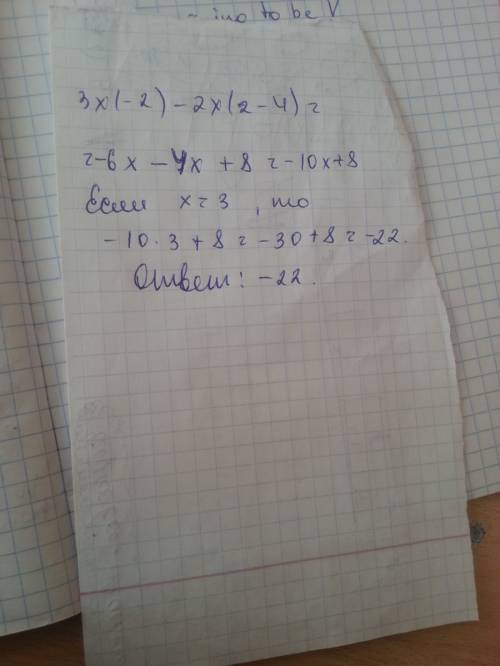 - ing to be V
3x(-2) - 2x(2-4) =
= -6x - 4x + 8 = -10x+8
Если x = 3, то
-10·3 + 8 = -30+8 = -22.
Ответ: -22.